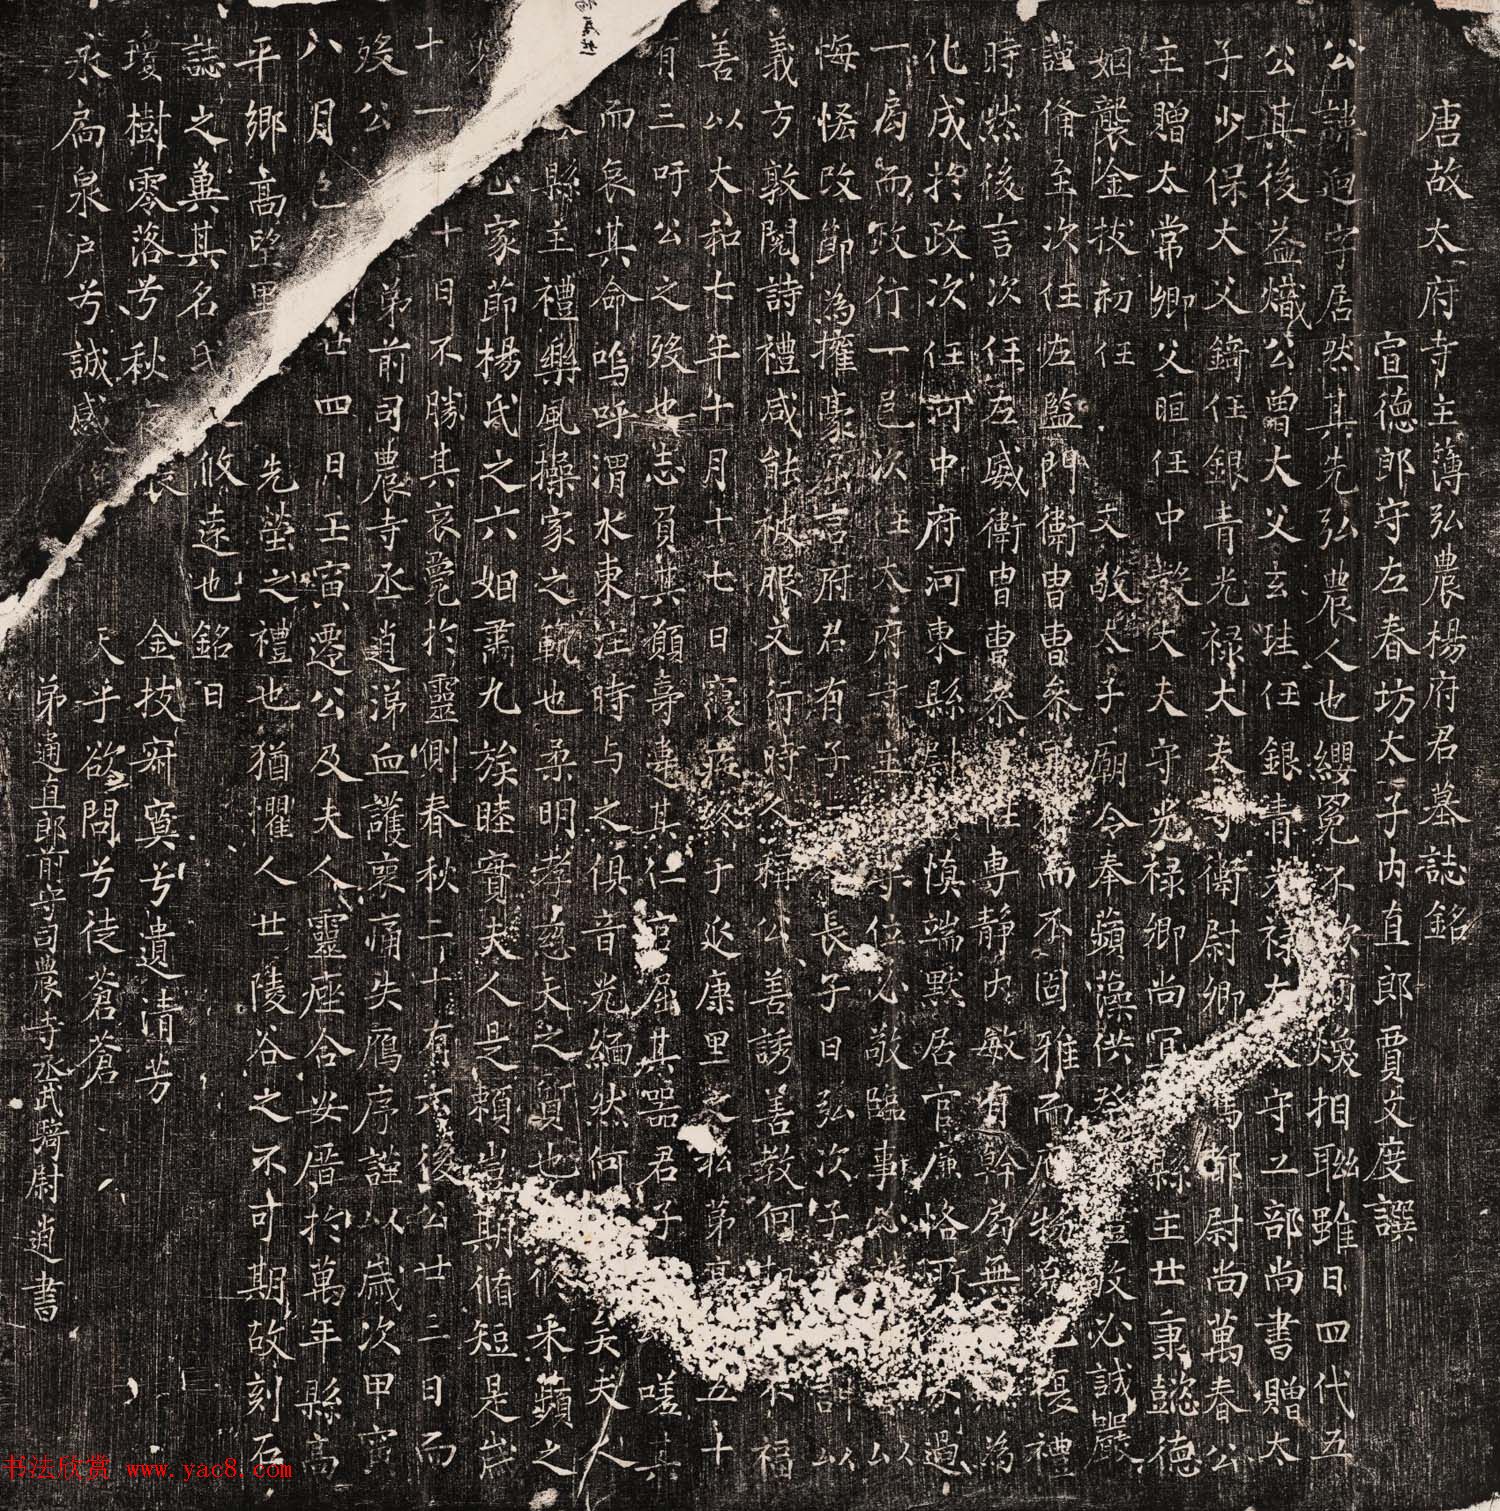 唐故太府寺主簿弘農楊府君墓誌銘
宣德郎守左春坊太子內直郎賈文度譔
公諱迥字居然其先弘農人也纓冕不 煥相聯雖日四代五
公其後益熾公曾大父玄珪任銀青光祿大夫守工部尚書贈太
子少保大父錡任銀青光祿大夫守衛尉卿 馬都尉尚萬春公
主贈太常卿父晅任中散大夫守光祿卿尚 縣主廿秉懿德
姻襲淦 初任 文敬太子廟令奉蘋藻供 敬必誠嚴
謹脩至次任左監門衛曹參軍 而不固雅而 物 禮
時然後言次任左威衛曹參 任專靜內敏有幹局無 為
化成於政次任河中府河東縣尉 慎端默居官廉恪所 過
一局而政行一邑次任太府寺主 守位必敬臨事 以
悔悟改節為 豪 府君有子 長子曰弘次子 以
義方敦閱詩禮咸能被服文行時人稱公善誘善教何 不福
善以大和七年十月十七日寢疾終于延康里之私第享 五十
有三吁公之歿也志負其願壽違其仁官屈其器君子 嗟其
而哀其命嗚呼渭水東注時与之俱音光緬然何 矣夫人
縣主禮樂風操家之範也柔明孝慈天之質也 脩采蘋之
家節楊氏之六姻肅九族睦實夫人是賴豈期脩短是歲
十一 十日不勝其哀薨於靈側春秋二十有六後公廿三日而
歿公 弟前司農寺丞逍涕血護喪痛失鴈序謹以歲次甲寅
八月 廿四日壬寅遷公及夫人靈座合安厝於萬年縣高
平鄉高望里 先塋之禮也猶懼人廿陵谷之不可期故刻石
誌之冀其名氏 攸遠也銘曰
瓊樹零落兮秋 金技寂寞兮遺清芳
永扃泉戶兮誠感 天乎欲問兮徒蒼蒼
弟通直郎前守司農寺丞武騎尉逍書
书法欣赏 www.yac8.com